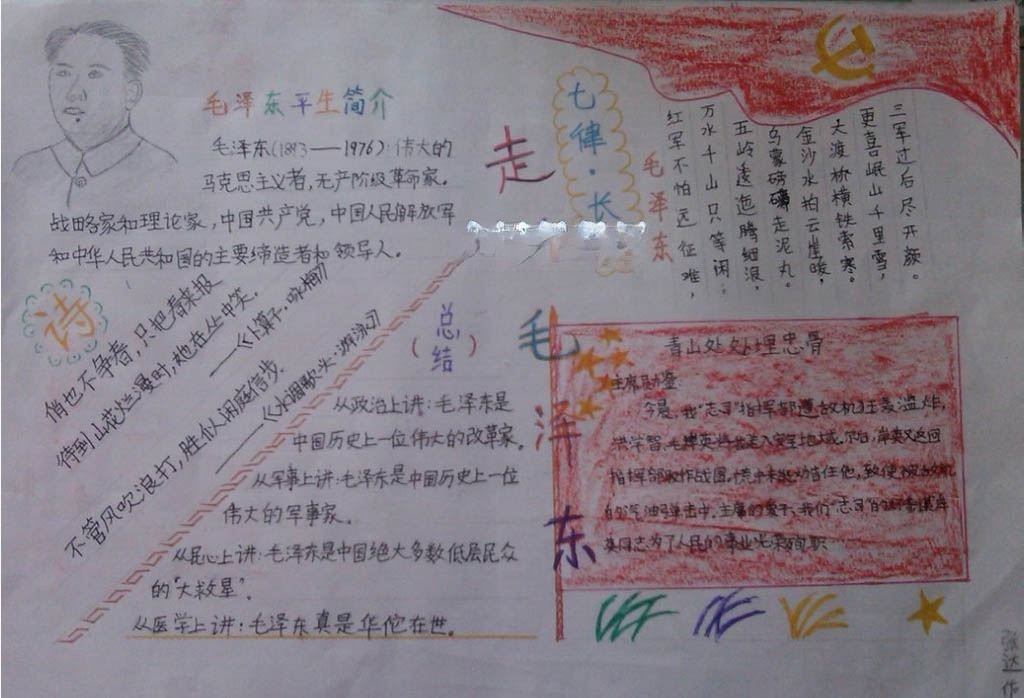 毛泽东平生简介
毛泽东(1893——1976):伟大的
马克思主义者,无产阶级革命家。
战略家和理论家,中国共产党,中国人民解放军
和中华人民共和国的主要缔造者和领导人。
诗
俏也不争春,只把春来报
待到山花烂漫时,她在丛中笑。
——《卜算子·咏梅》
不管风吹浪打,胜似闲庭信步。
——《水调歌头·游泳》
(总结)
从政治上讲:毛泽东是
中国历史上一位伟大的改革家。
从军事上讲:毛泽东是中国历史上一位
伟大的军事家。
从民心上讲:毛泽东是中国绝大多数低层民众
的“大救星”。
从医学上讲:毛泽东真是华佗在世。
走
毛泽东
七律·长
毛泽东
红军不怕远征难,
万水千山只等闲;
五岭逶迤腾细浪,
乌蒙磅礴走泥丸。
金沙水拍云崖暖,
大渡桥横铁索寒。
更喜岷山千里雪,
三军过后尽开颜。
青山处处埋忠骨
主席
今晨,我“志司”指挥部遭敌机狂轰滥炸,
洪学智
指挥部取作战图,
的汽油弹击中,主席的爱子,我们“志司”的
英同志为了人民的事业光荣殉职
张达伟